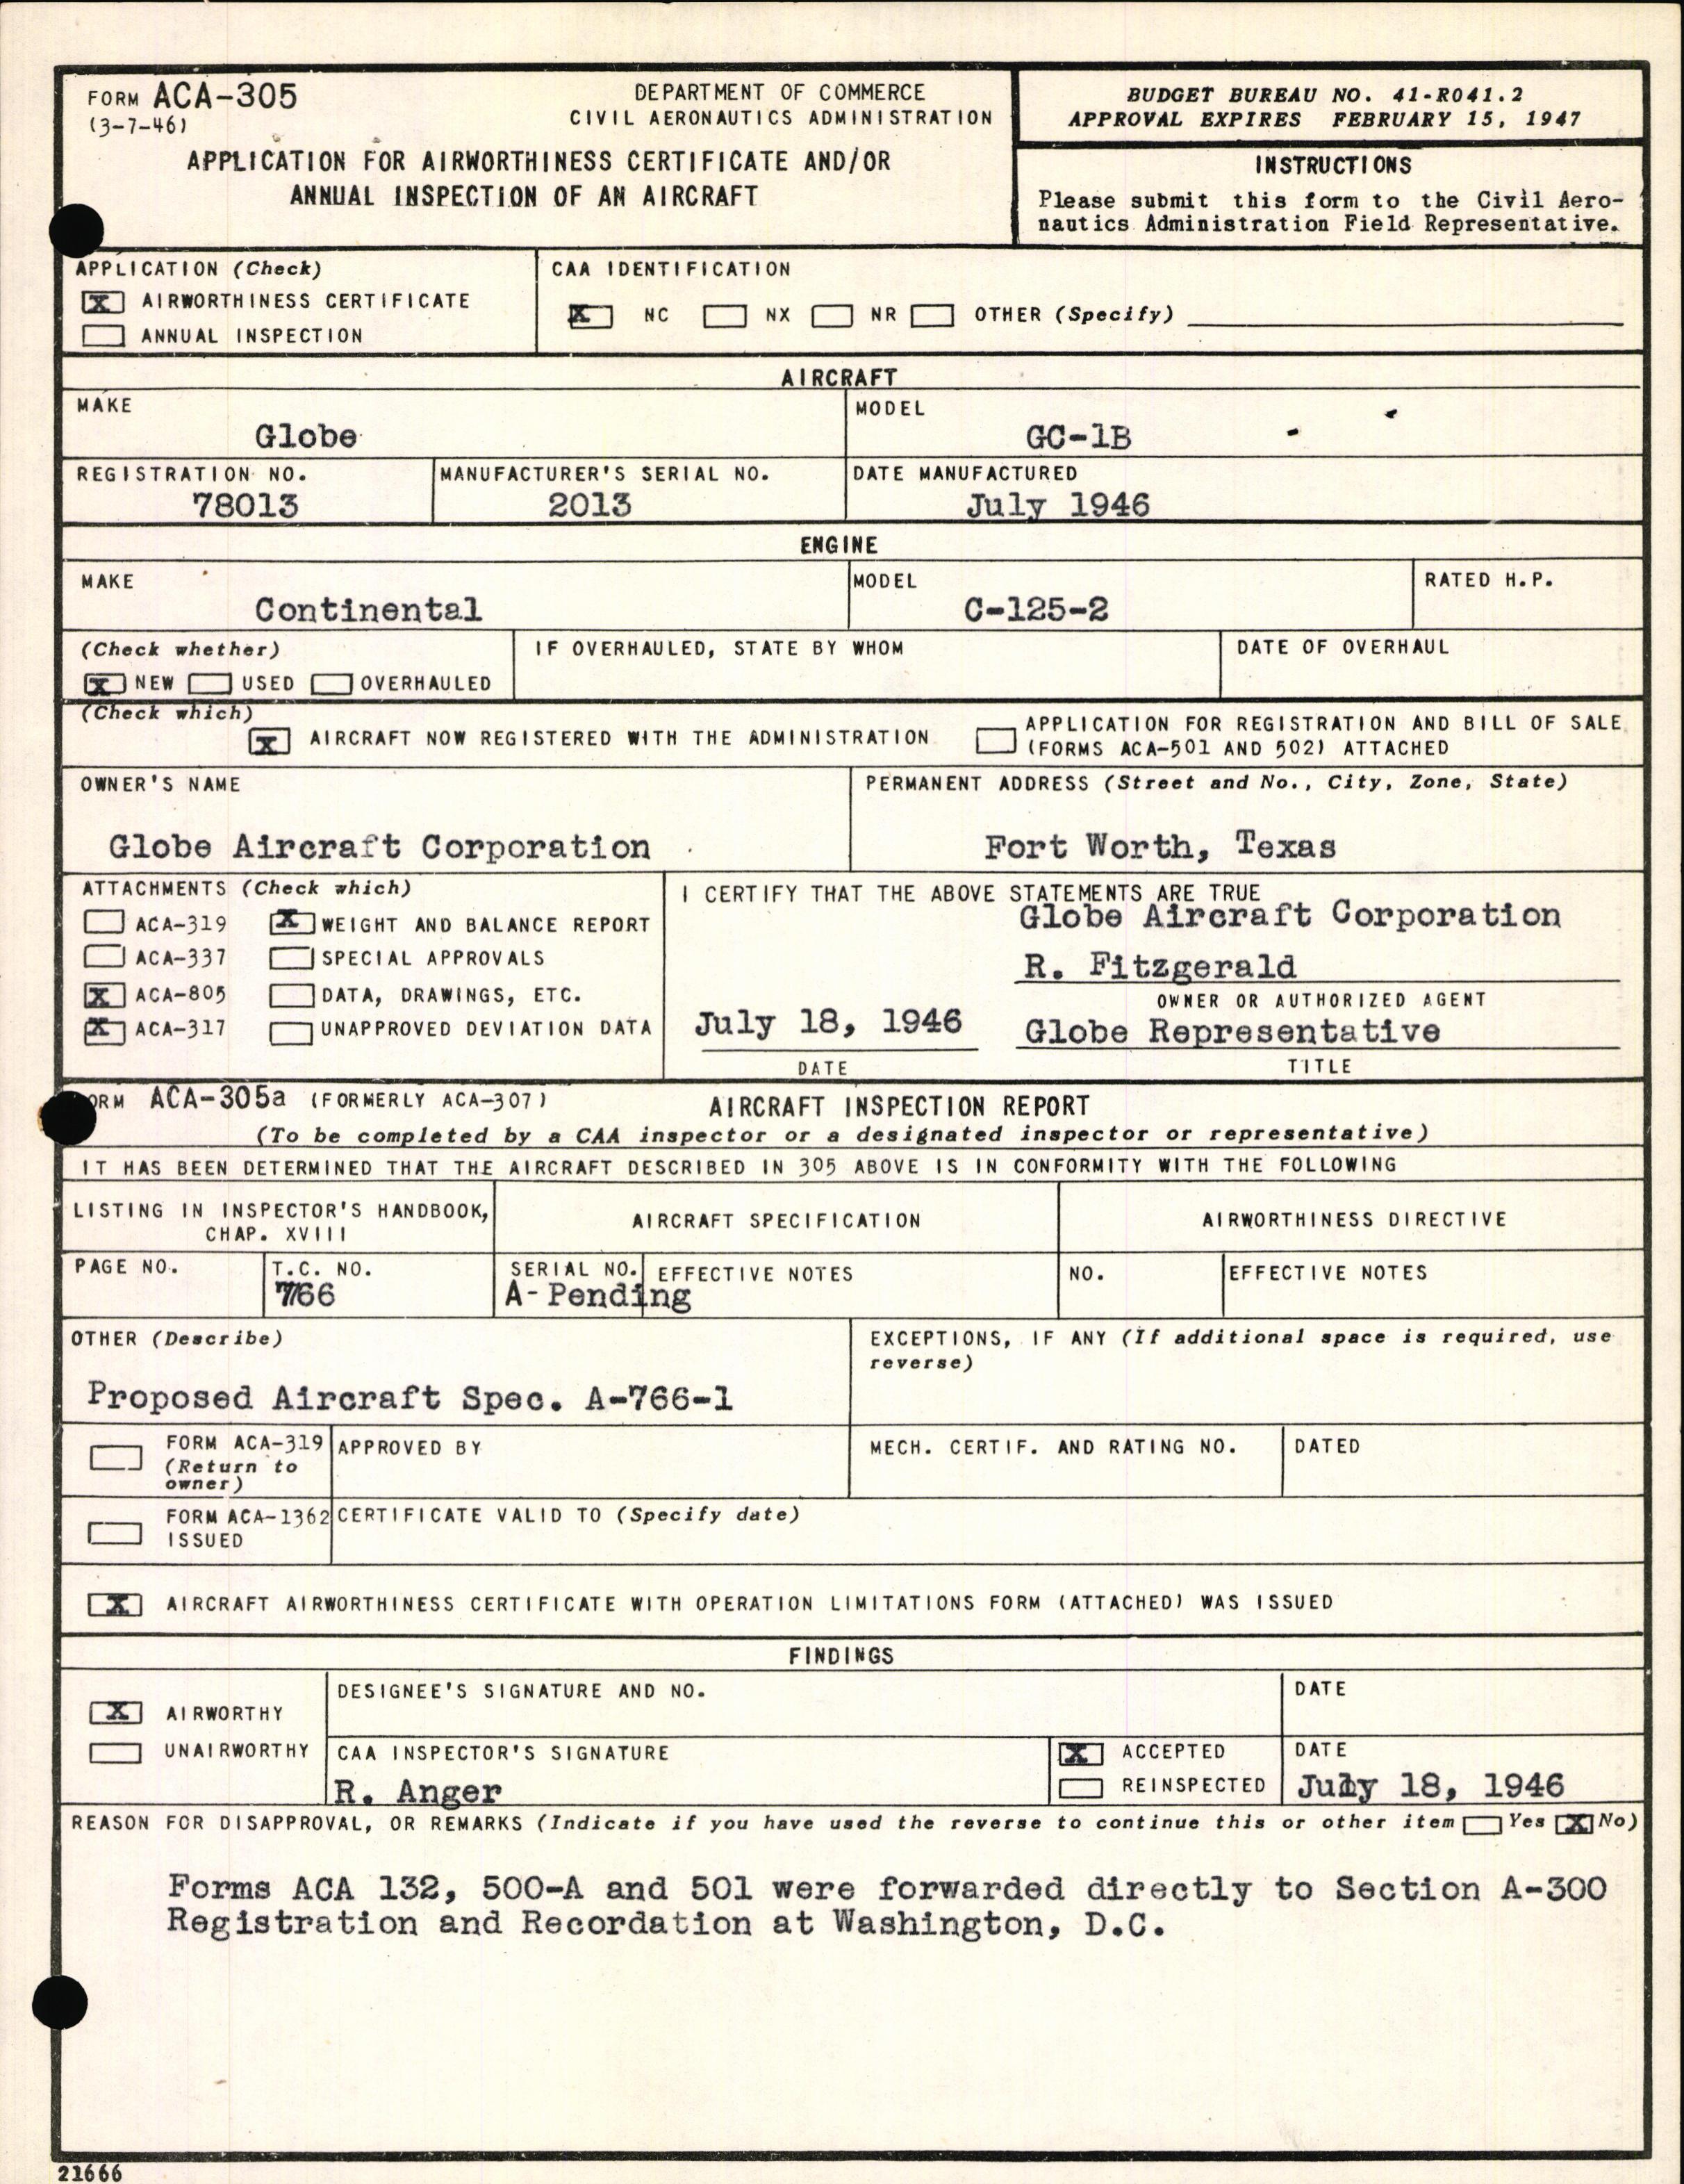 FORM ACA-305
(3-7-46)
DEPARTMENT OF COMMERCE
CIVIL AERONAUTICS ADMINISTRATION
APPLICATION FOR AIRWORTHINESS CERTIFICATE AND/OR
ANNUAL INSPECTION OF AN AIRCRAFT
BUDGET BUREAU NO. 41-R041.2
APPROVAL EXPIRES FEBRUARY 15, 1947
INSTRUCTIONS
Please submit this form to the Civil Aero-
nautics Administration Field Representative.
APPLICATION (Check)
X AIRWORTHINESS CERTIFICATE
ANNUAL INSPECTION
CAA IDENTIFICATION
X NC NX NR OTHER (Specify)
AIRCRAFT
MAKE
Globe
MODEL
GC-1B
REGISTRATION NO.
78013
MANUFACTURER'S SERIAL NO.
2013
DATE MANUFACTURED
July 1946
ENGINE
MAKE
Continental
MODEL
C-125-2
RATED H.P.
(Check whether)
X NEW USED OVERHAULED
IF OVERHAULED, STATE BY WHOM
DATE OF OVERHAUL
(Check which)
X AIRCRAFT NOW REGISTERED WITH THE ADMINISTRATION
APPLICATION FOR REGISTRATION AND BILL OF SALE
(FORMS ACA-501 AND 502) ATTACHED
OWNER'S NAME
Globe Aircraft Corporation
PERMANENT ADDRESS (Street and No., City, Zone, State)
Fort Worth, Texas
ATTACHMENTS (Check which)
ACA-319 X WEIGHT AND BALANCE REPORT
ACA-337 SPECIAL APPROVALS
X ACA-805 DATA, DRAWINGS, ETC.
X ACA-317 UNAPPROVED DEVIATION DATA
I CERTIFY THAT THE ABOVE STATEMENTS ARE TRUE
Globe Aircraft Corporation
R. Fitzgerald
OWNER OR AUTHORIZED AGENT
July 18, 1946 Globe Representative
DATE TITLE
ORM ACA-305a (FORMERLY ACA-307) AIRCRAFT INSPECTION REPORT
(To be completed by a CAA inspector or a designated inspector or representative)
IT HAS BEEN DETERMINED THAT THE AIRCRAFT DESCRIBED IN 305 ABOVE IS IN CONFORMITY WITH THE FOLLOWING
LISTING IN INSPECTOR'S HANDBOOK,
CHAP. XVIII
AIRCRAFT SPECIFICATION
AIRWORTHINESS DIRECTIVE
PAGE NO.
T.C. NO.
766
SERIAL NO. EFFECTIVE NOTES
A-Pending
NO.
EFFECTIVE NOTES
OTHER (Describe)
Proposed Aircraft Spec. A-766-1
EXCEPTIONS, IF ANY (If additional space is required, use
reverse)
FORM ACA-319
(Return to
owner)
APPROVED BY
MECH. CERTIF. AND RATING NO.
DATED
FORM ACA-1362
ISSUED
CERTIFICATE VALID TO (Specify date)
X AIRCRAFT AIRWORTHINESS CERTIFICATE WITH OPERATION LIMITATIONS FORM (ATTACHED) WAS ISSUED
FINDINGS
X AIRWORTHY
UNAIRWORTHY
DESIGNEE'S SIGNATURE AND NO.
DATE
CAA INSPECTOR'S SIGNATURE
R. Anger
X ACCEPTED
REINSPECTED
DATE
July 18, 1946
REASON FOR DISAPPROVAL, OR REMARKS (Indicate if you have used the reverse to continue this or other item Yes X No)
Forms ACA 132, 500-A and 501 were forwarded directly to Section A-300
Registration and Recordation at Washington, D.C.
21666